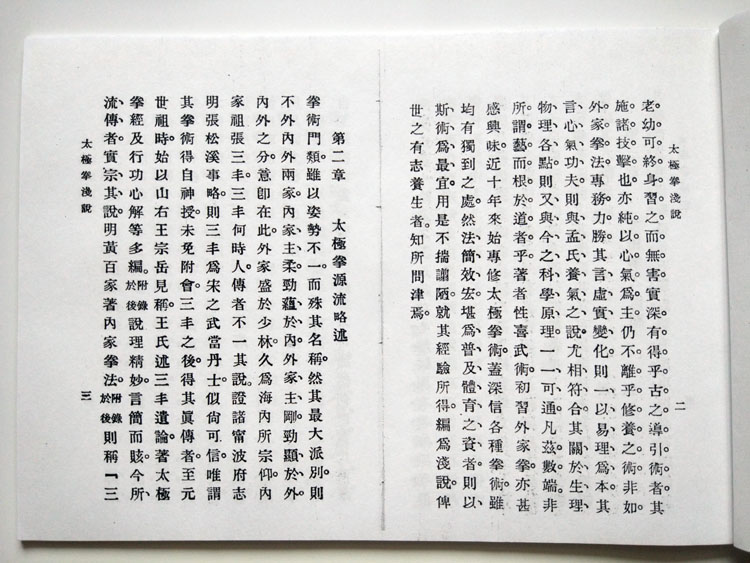 太極拳淺說
二
老。幼可終身習之。而無害。實深有得乎古之導引術者。其
施諸技擊也。亦純以心氣爲主。仍不離乎修養之術。非如
外家拳法。專務力勝。其言虛實變化。則一以易理爲本。其
言、心氣功夫。則與孟氏養氣之說。尤相符合。其關於生理、
物理各點。則又與今之科學原理。一一可通。凡茲數端。非
所。謂藝。而根於道者乎。著者性喜武術。初習外家拳。亦甚
感興味。近十年來。始專修太極拳術。蓋深信各種拳術。雖
均有獨到之處。然法簡效宏。堪爲普及體育之資者。則以
斯術爲最宜。用是不揣譾陋。就其經驗所得。編爲淺說。俾
世之有志養生者。知所問津焉。
第二章　太極拳源流略述
拳術門類。雖以姿勢不一。而殊其名稱。然其最大派別。則
不外內外兩家。內家主柔。勁蘊於內。外家主剛。勁顯於外。
內外之分。意卽在此。外家盛於少林。久爲海內所宗仰。內
家祖張三丰。三丰何時人。傳者不一其說。證諸甯波府志
明張松溪事略。則三丰爲宋之武當丹士。似尙可信。唯謂
其拳術得自神授。未免附會。三丰之後。得其眞傳者。至元
世祖時。始以山右王宗岳見稱。王氏述三丰遺論。著太極
拳經及行功心解等多編。附錄於後說理精妙。言簡而賅。今所
流傳者。實宗其說。明黃百家著內家拳法。附錄於後則稱「三
太極拳淺說
三